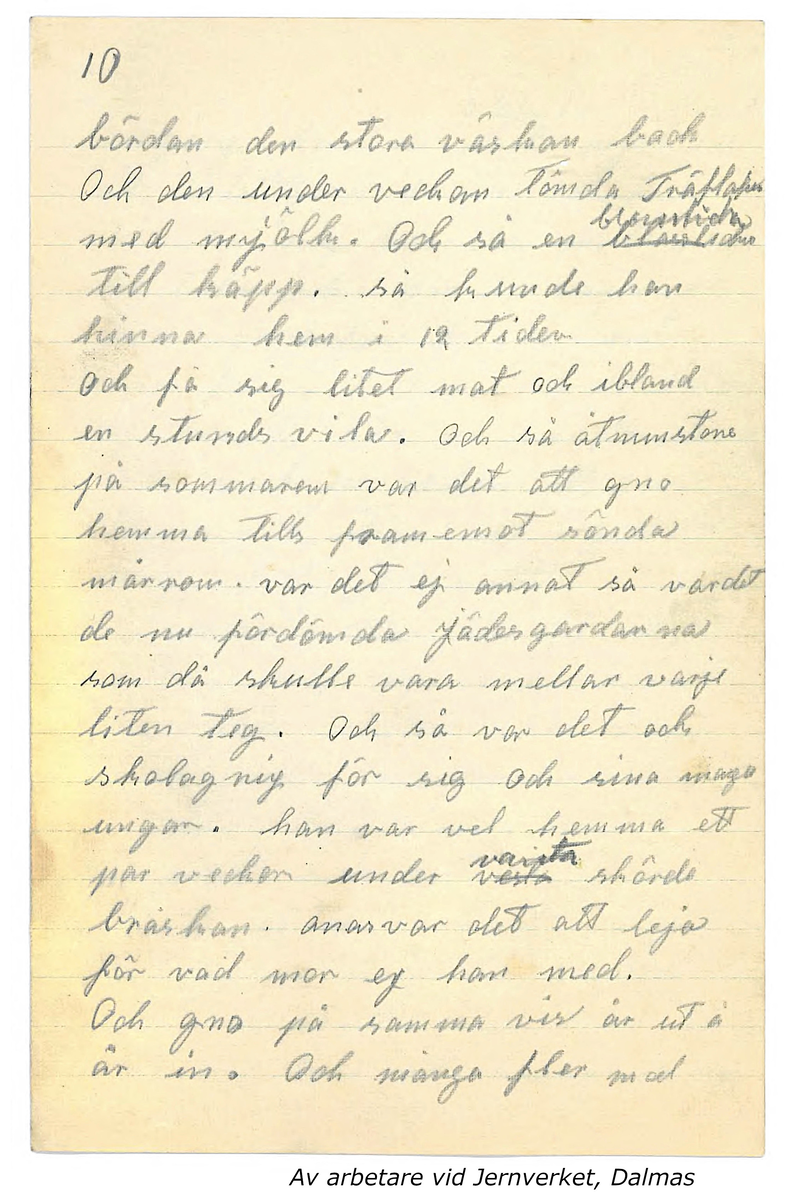 10
bördan den stora väskan back
Och den under veckan tömda Träflaskan
med myjölk. Och så en
till käpp. så kunde han
hinna hem i 12 tiden
och få sig litet mat och ibland
en stunds vila. Och så åtminstone
på sommaren var det att gno
hemma tills framemot sönda
mårrom. var det ej annat så vardet
de nu fördömda jädesgardarna
som då skulle vara mellar varje
liten teg. Och så var det och
skolagnig för sig och sina maga
ungar. han var vel hemma ett
par veckor under varsta skörde
bråskan. anarsvar det att leja
för vad mor ej han med.
Och gno på samma vis år ut å
år in. Och många fler med
Av arbetare vid Jernverket, Dalmas